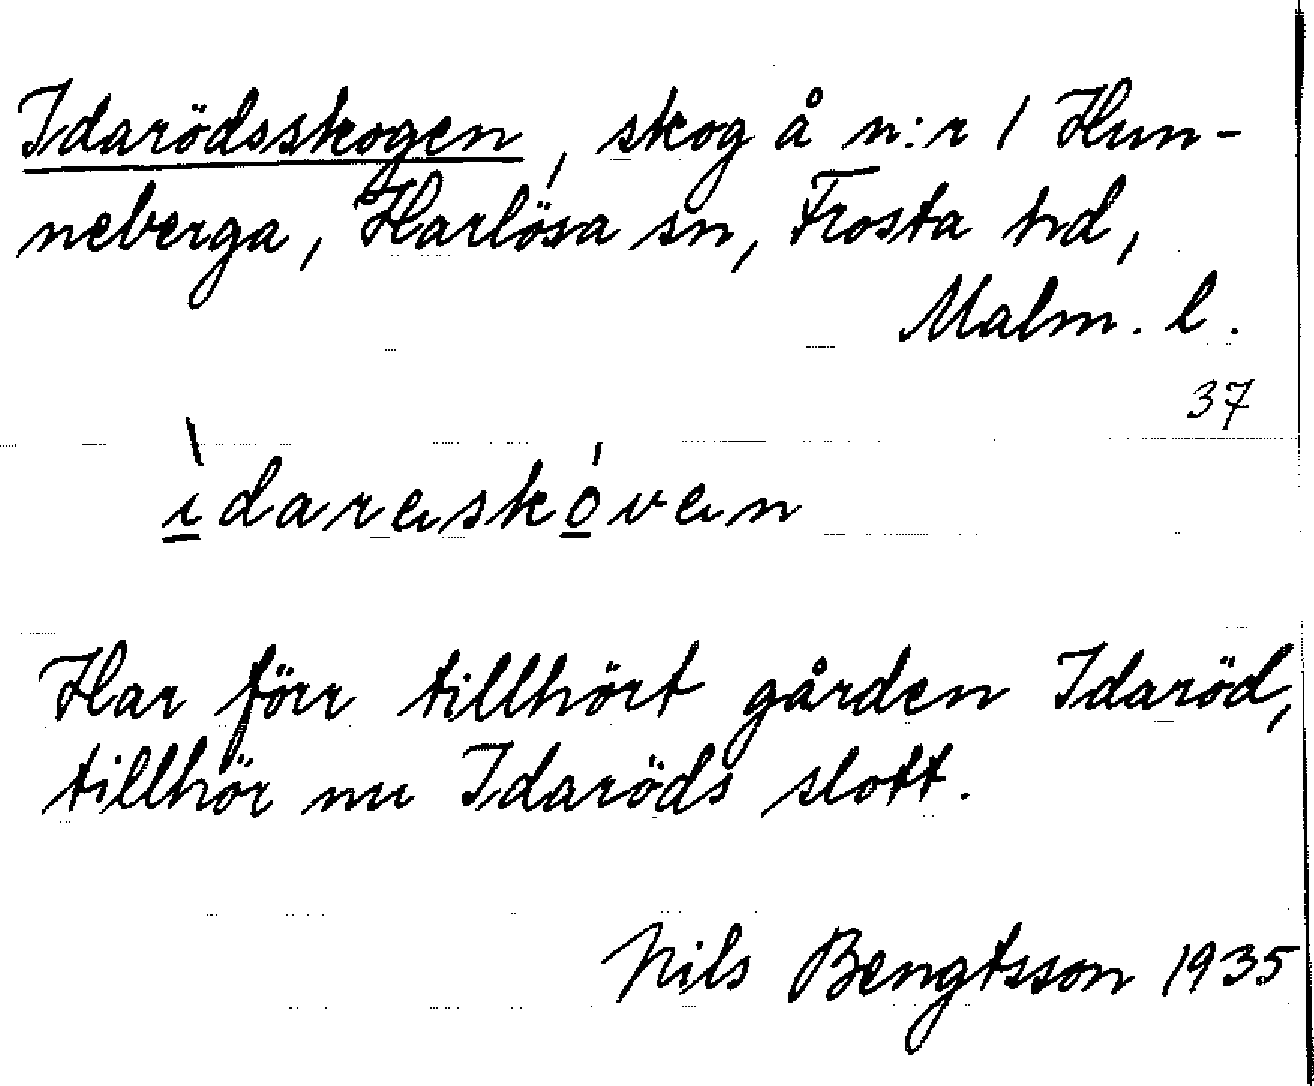 Idarödsskogen, skog å n:r 1 Hun-
neberga, Harlösa sn, Frosta hd,
Malm. l.
37
ìdarəskóvən
Har förr tillhört gården Idaröd,
tillhör nu Idaröds slott.
Nils Bengtsson 1935